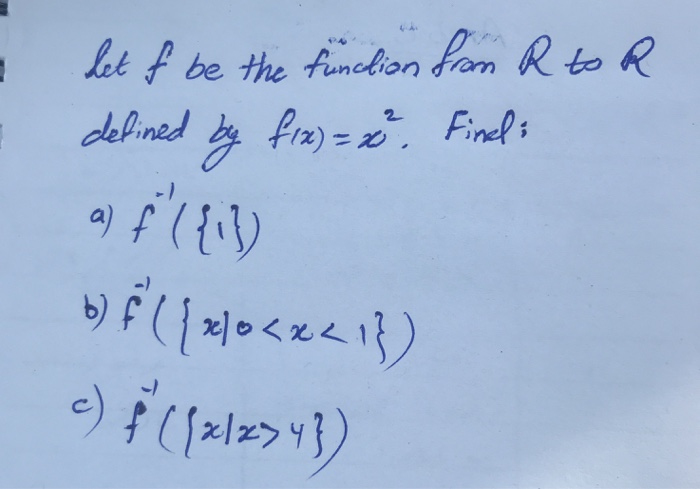 Let f be the function from R to R
defined by f(x) = x². Find:
a) f⁻¹({1})
b) f⁻¹({x|0<x<1})
c) f⁻¹({x|x>4})